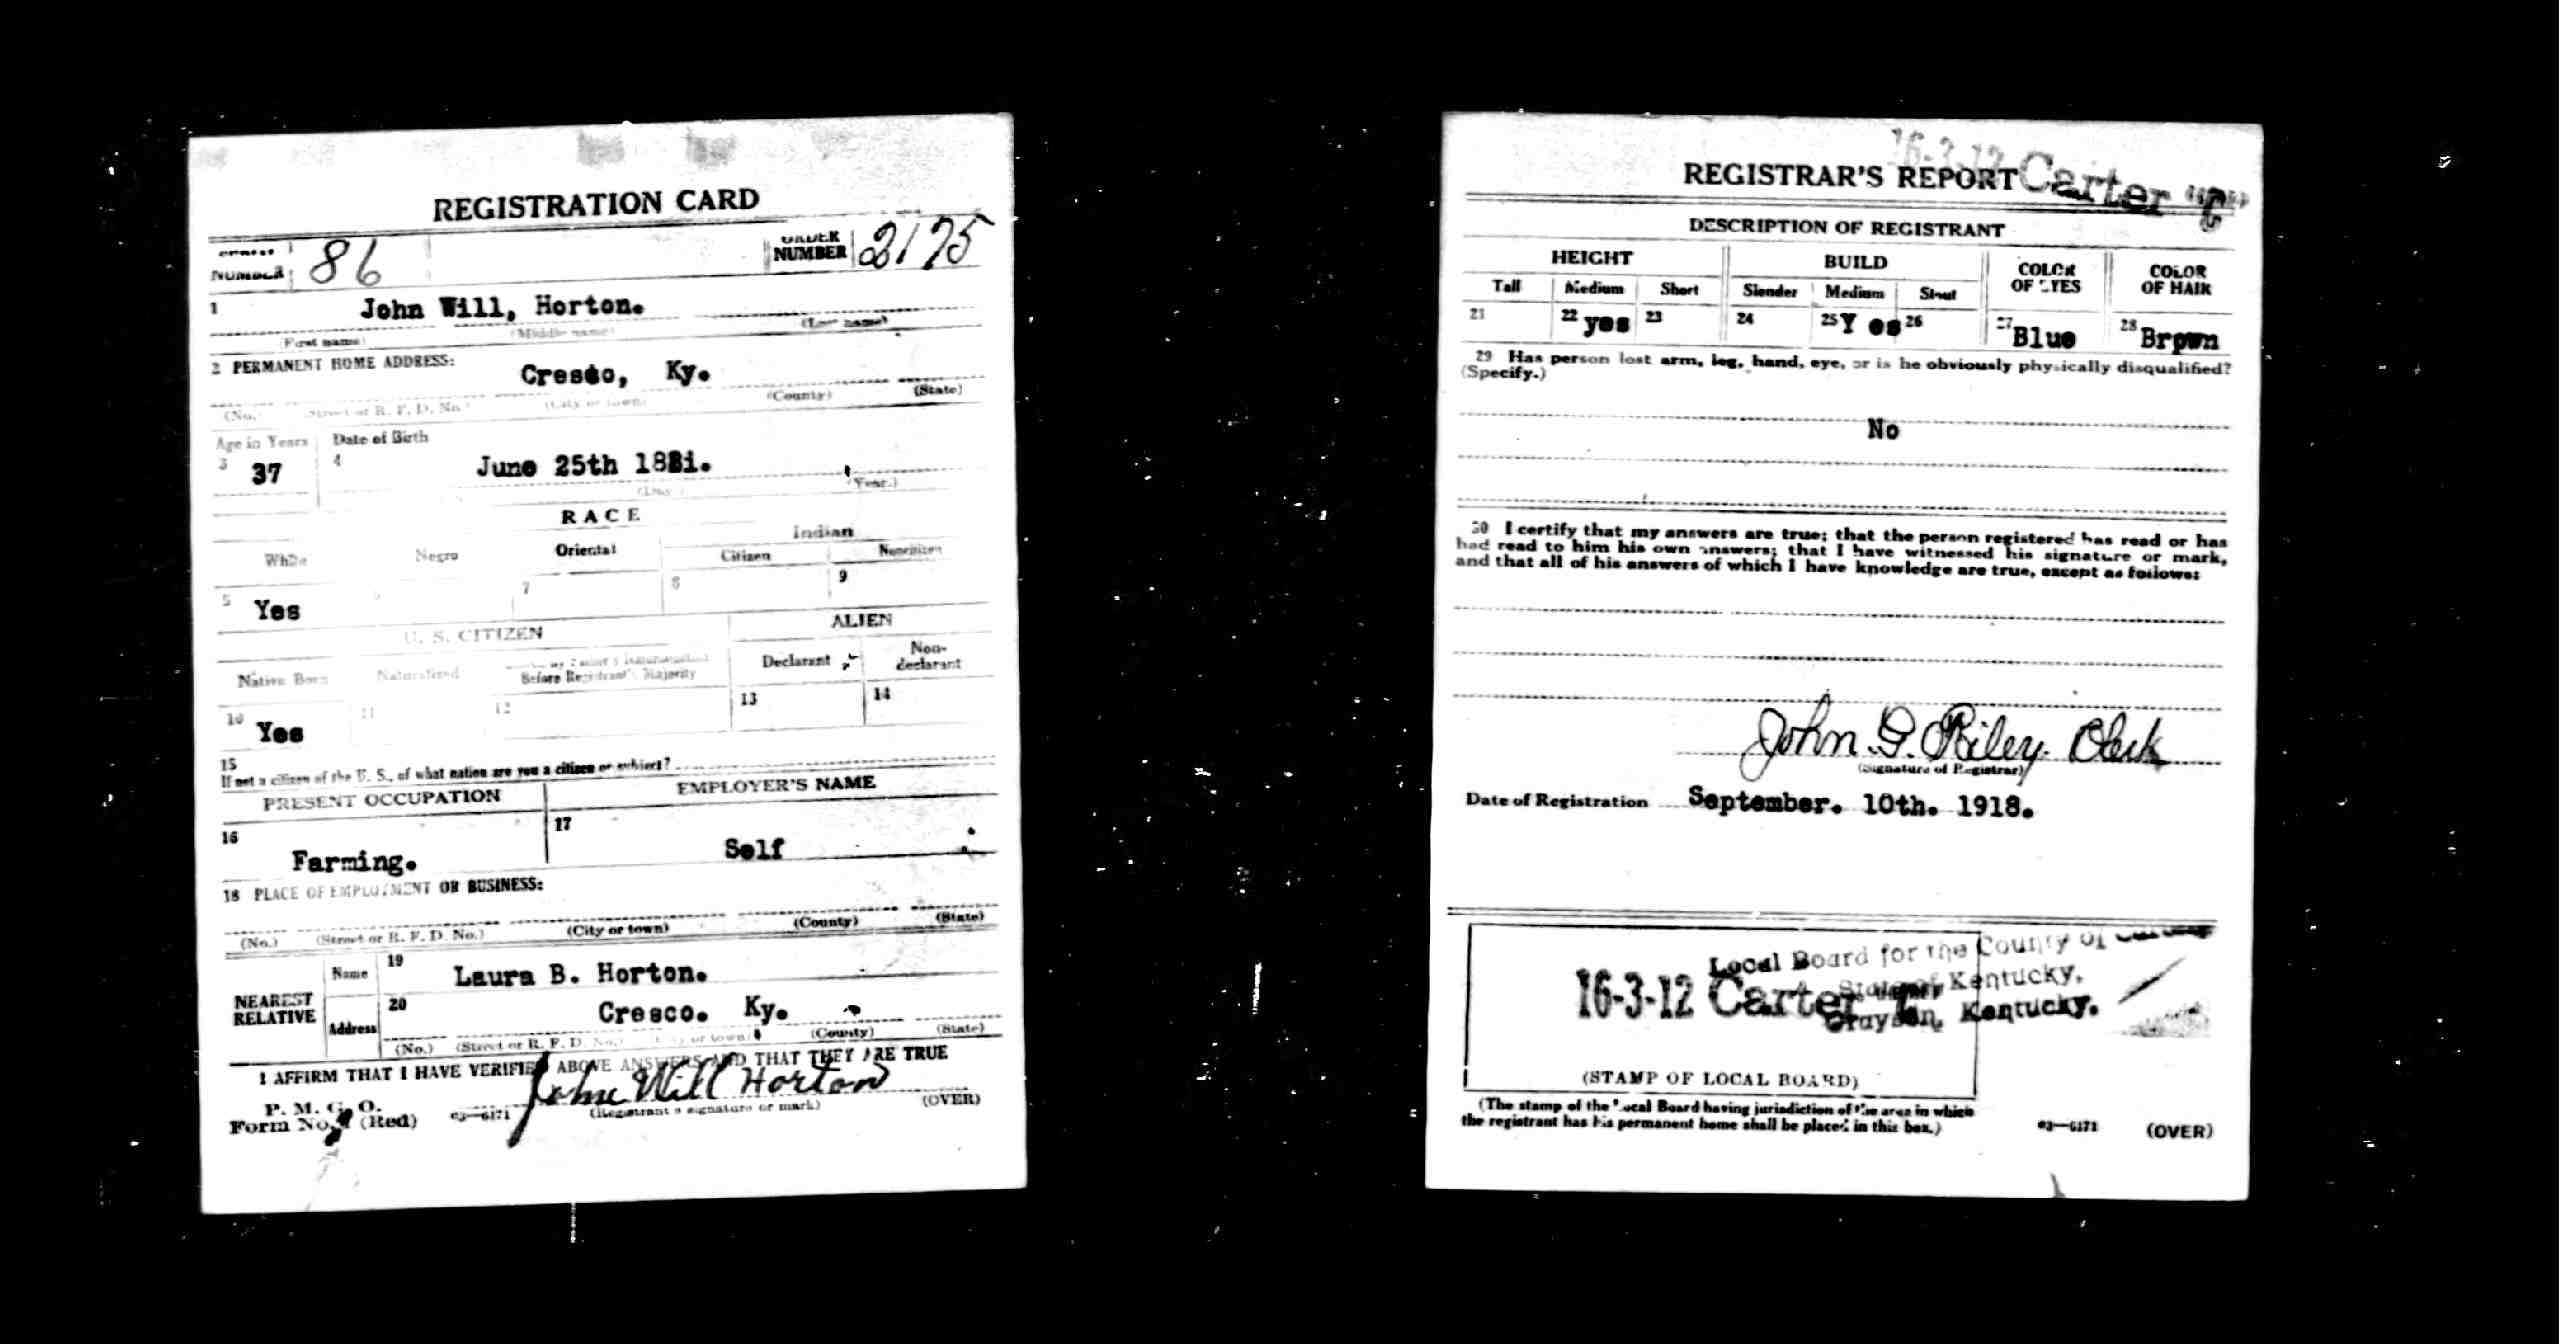 REGISTRATION CARD
NUMBER 86 ORDER NUMBER 2175
1 John Will, Horton.
(First name) (Middle name) (Last name)
2 PERMANENT HOME ADDRESS:
Cresco, Ky.
(No.) (Street or R. F. D. No.) (City or town) (County) (State)
Age in Years Date of Birth
3 37 4 June 25th 1881.
(Day) (Year.)
RACE
White Negro Oriental Indian
Citizen Noncitizen
5 Yes 7 8 9
U. S. CITIZEN ALIEN
Native Born Naturalized Before Registrant's Majority Declarant Non-declarant
10 Yes 11 12 13 14
15
If not a citizen of the U. S., of what nation are you a citizen or subject?
PRESENT OCCUPATION EMPLOYER'S NAME
16 Farming. 17 Self
18 PLACE OF EMPLOYMENT OR BUSINESS:
(No.) (Street or R. F. D. No.) (City or town) (County) (State)
NEAREST RELATIVE Name 19 Laura B. Horton.
Address 20 Cresco. Ky.
(No.) (Street or R. F. D. No.) (City or town) (County) (State)
I AFFIRM THAT I HAVE VERIFIED ABOVE ANSWERS AND THAT THEY ARE TRUE
P. M. G. O.
Form No. 1 (Red) 03—6171 John Will Horton (OVER)
(Registrant's signature or mark)
16-3-12 Carter "C"
REGISTRAR'S REPORT
DESCRIPTION OF REGISTRANT
HEIGHT BUILD COLOR OF EYES COLOR OF HAIR
Tall Medium Short Slender Medium Stout
21 22 yes 23 24 25 Y es 26 27 Blue 28 Brown
29 Has person lost arm, leg, hand, eye, or is he obviously physically disqualified?
(Specify.)
No
30 I certify that my answers are true; that the person registered has read or has
had read to him his own answers; that I have witnessed his signature or mark,
and that all of his answers of which I have knowledge are true, except as follows:
John G. Riley Clerk
(Signature of Registrar)
Date of Registration September. 10th. 1918.
Local Board for the County of
State of Kentucky,
16-3-12 Carter "C"
Grayson, Kentucky.
(STAMP OF LOCAL BOARD)
(The stamp of the Local Board having jurisdiction of the area in which
the registrant has his permanent home shall be placed in this box.)
03—6171 (OVER)